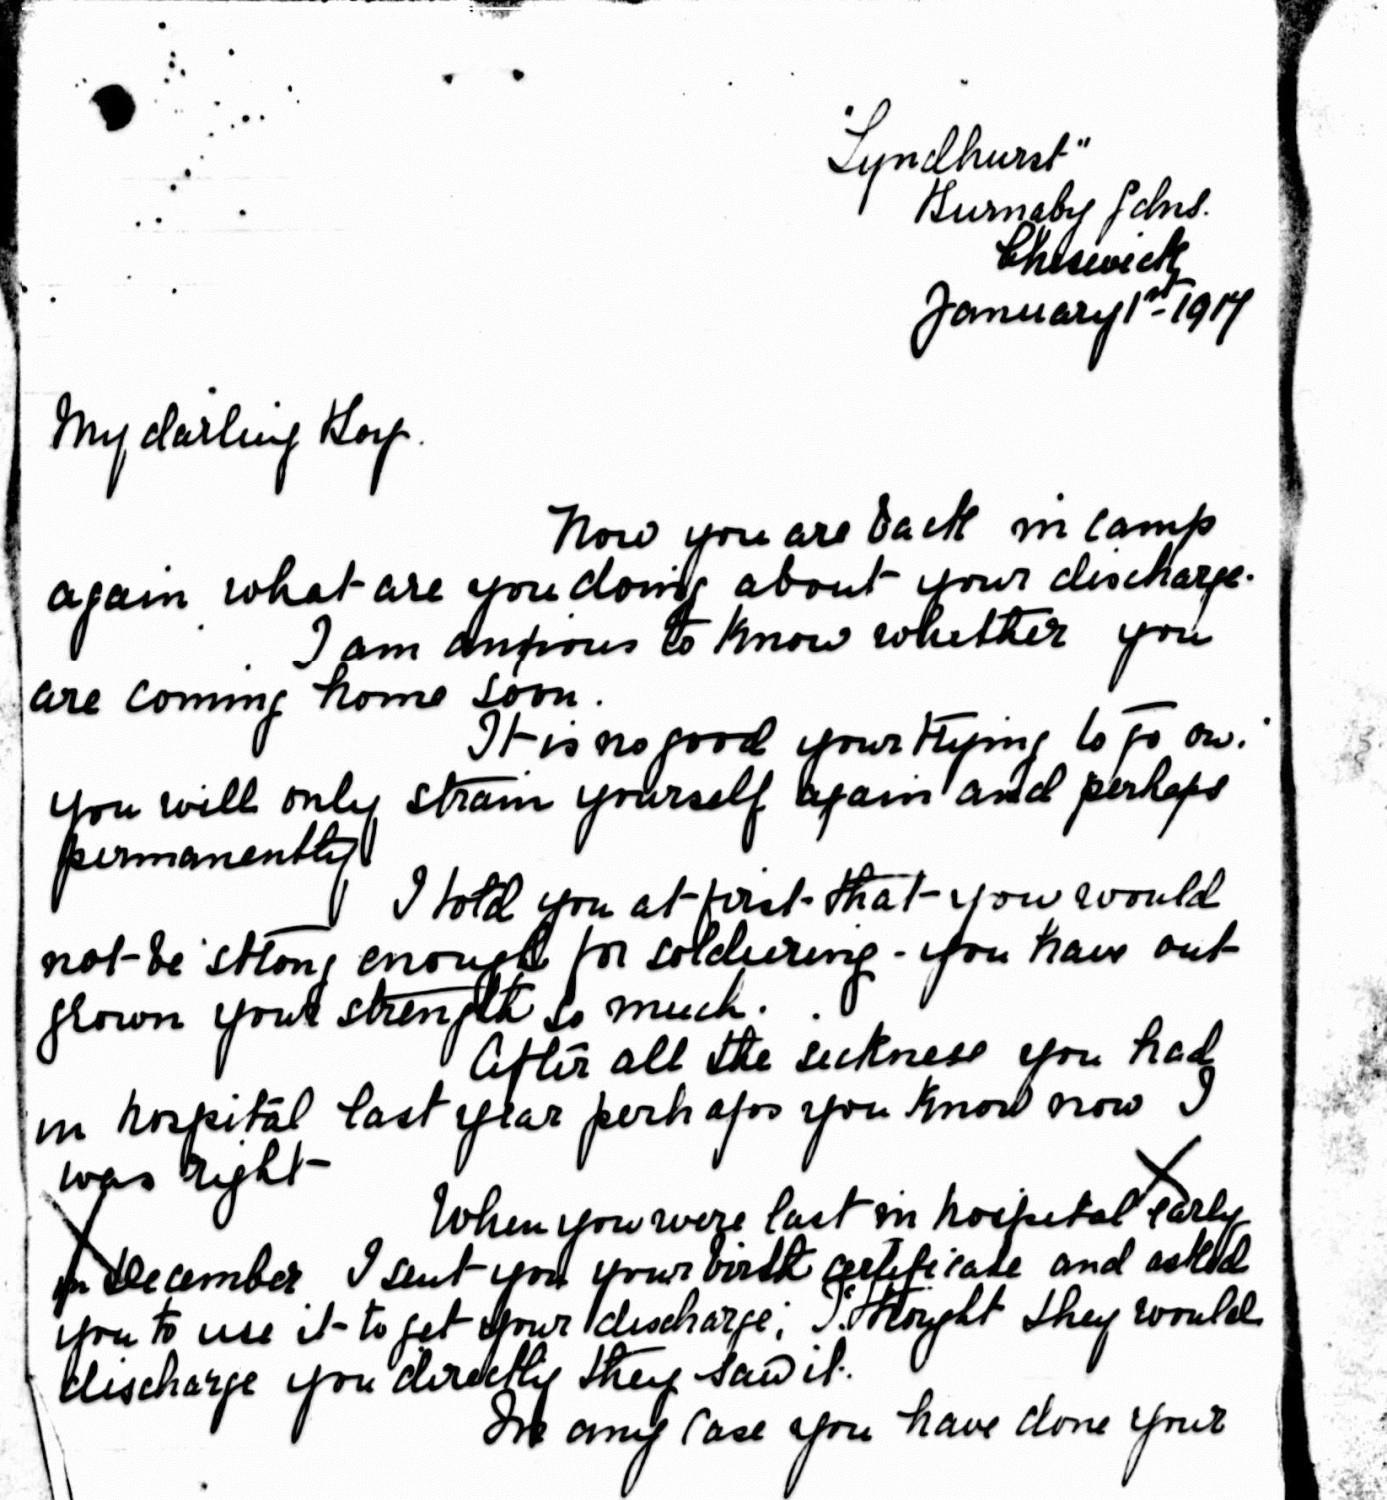 "Lyndhurst"
Burnaby Gdns.
Chiswick
January 1st 1917
My darling Boy.
Now you are back in camp
again what are you doing about your discharge.
I am anxious to know whether you
are coming home soon.
It is no good your trying to go on.
you will only strain yourself again and perhaps
permanently
I told you at first that you would
not be strong enough for soldiering - you have out
grown your strength so much.
After all the sickness you had
in hospital last year perhaps you know now I
was right
When you were last in hospital early
in December I sent you your birth certificate and asked
you to use it to get your discharge; I thought they would
discharge you directly they saw it.
In any case you have done your